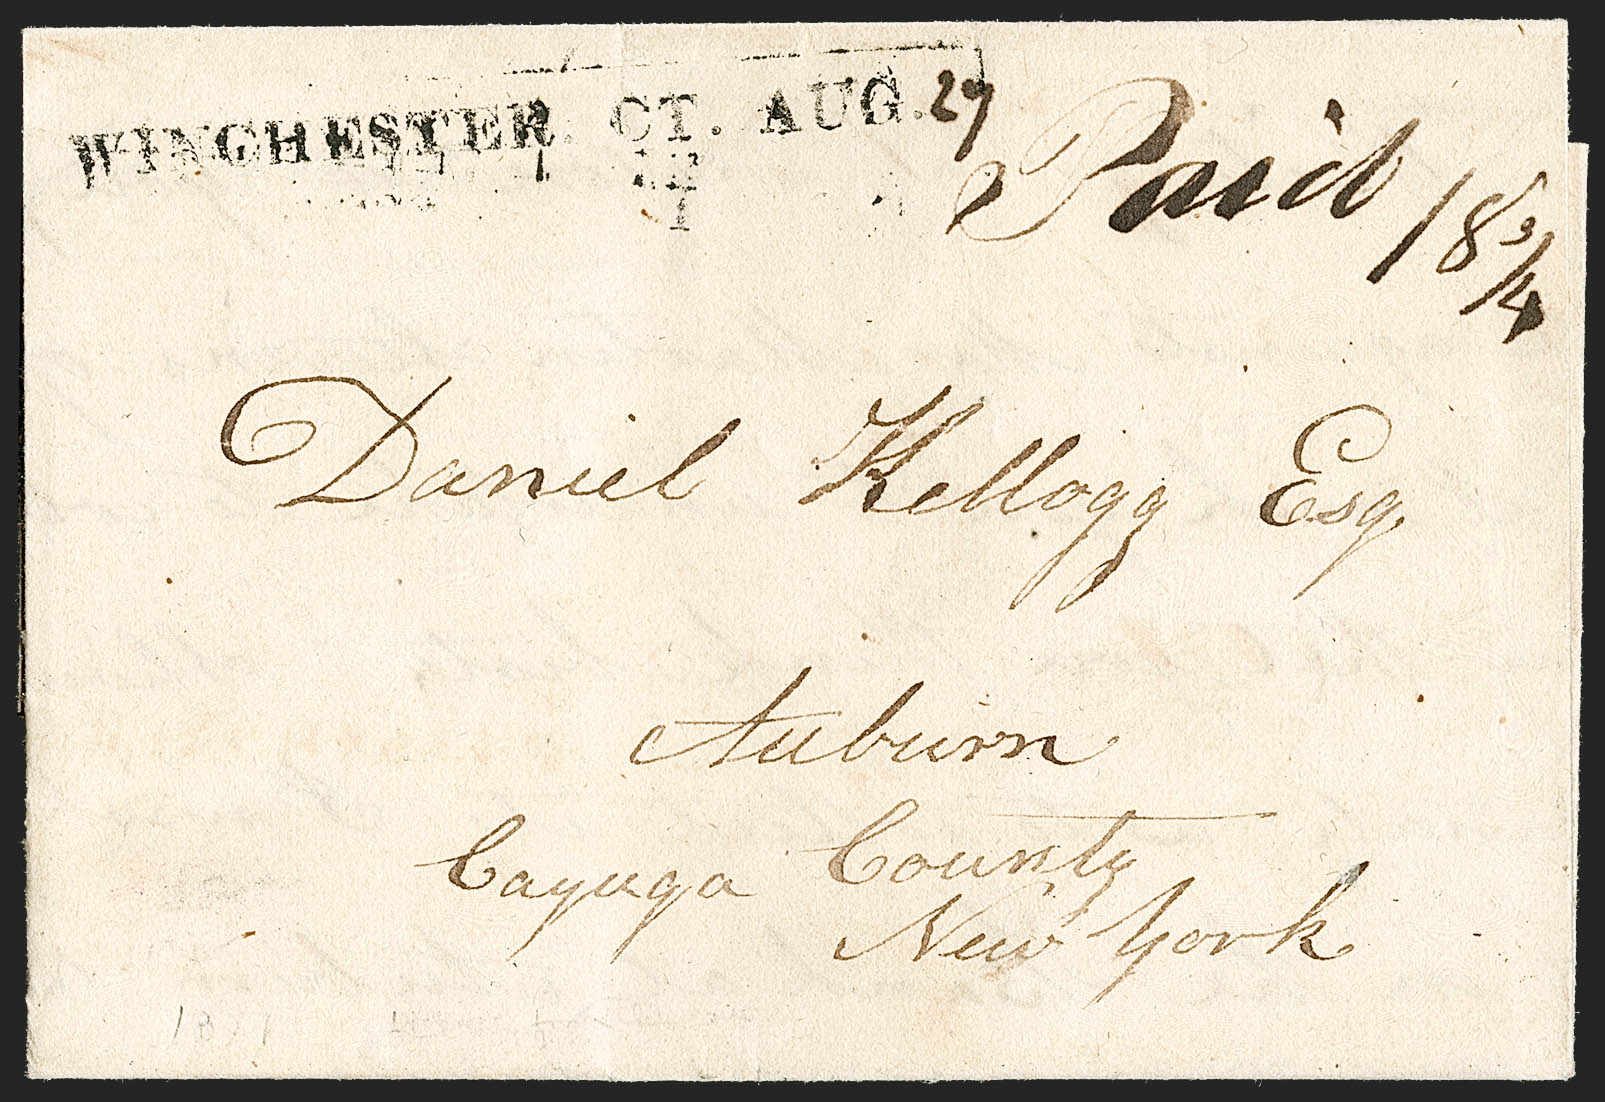 WINCHESTER. CT. AUG. 29
Paid 18 3/4
Daniel Kellogg Esq.
Auburn
Cayuga County
New York